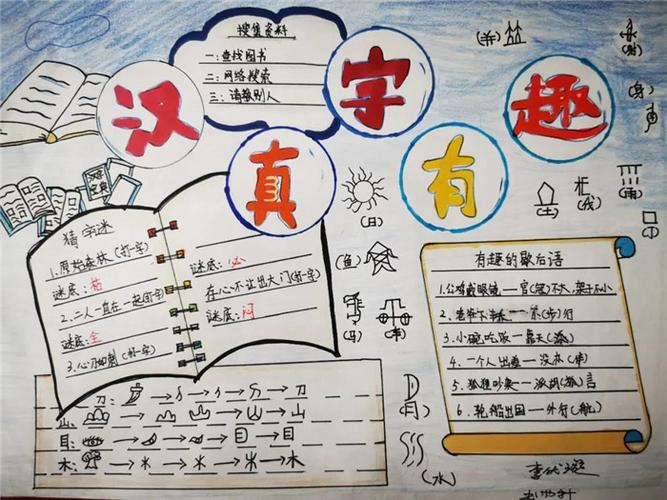 汉字真有趣
搜集资料
一:查找图书
二:网络搜索
三:请教别人
猜字迷
1.原始森林(打一字)
谜底:枯
2.二人一直在一起(打一字)
谜底:全
3.心刀切刺(打一字)
谜底:必
存心不让出大门(打一字)
谜底:闷
刀:→→→→刀
山:→→→→山
目:→→→目
木:→木→→木
(日)
(鱼)
(马)
(月)
(水)
(土)
(戊)
(雨)
(身)
有趣的歇后语
1.公鸡戴眼镜一官(冠)不大,架子不小
3.小碗吃饭一靠天(添)
4.一个人出差一没
5.狐狸吵架一派胡(狐)言
6.轮船出国一外行(航)